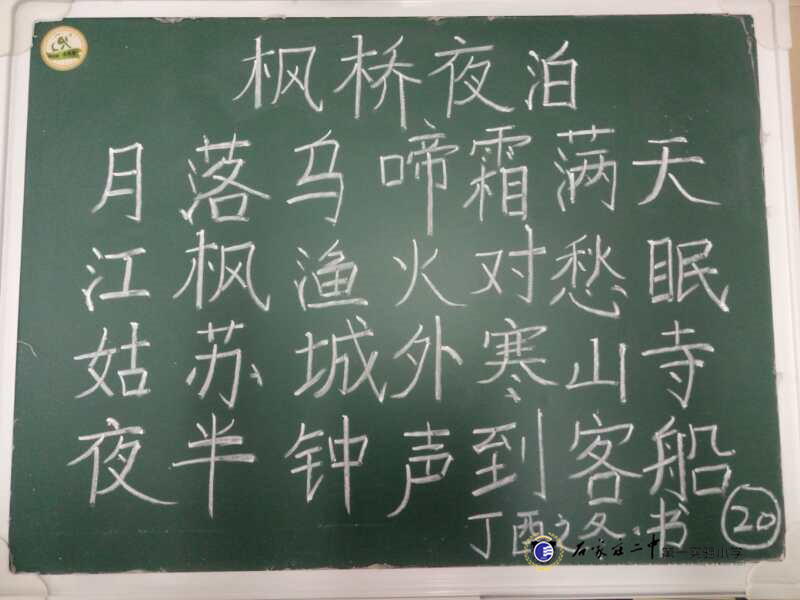 枫桥夜泊
月落乌啼霜满天
江枫渔火对愁眠
姑苏城外寒山寺
夜半钟声到客船
丁酉之冬·书
20
石家庄二中
第一实验小学